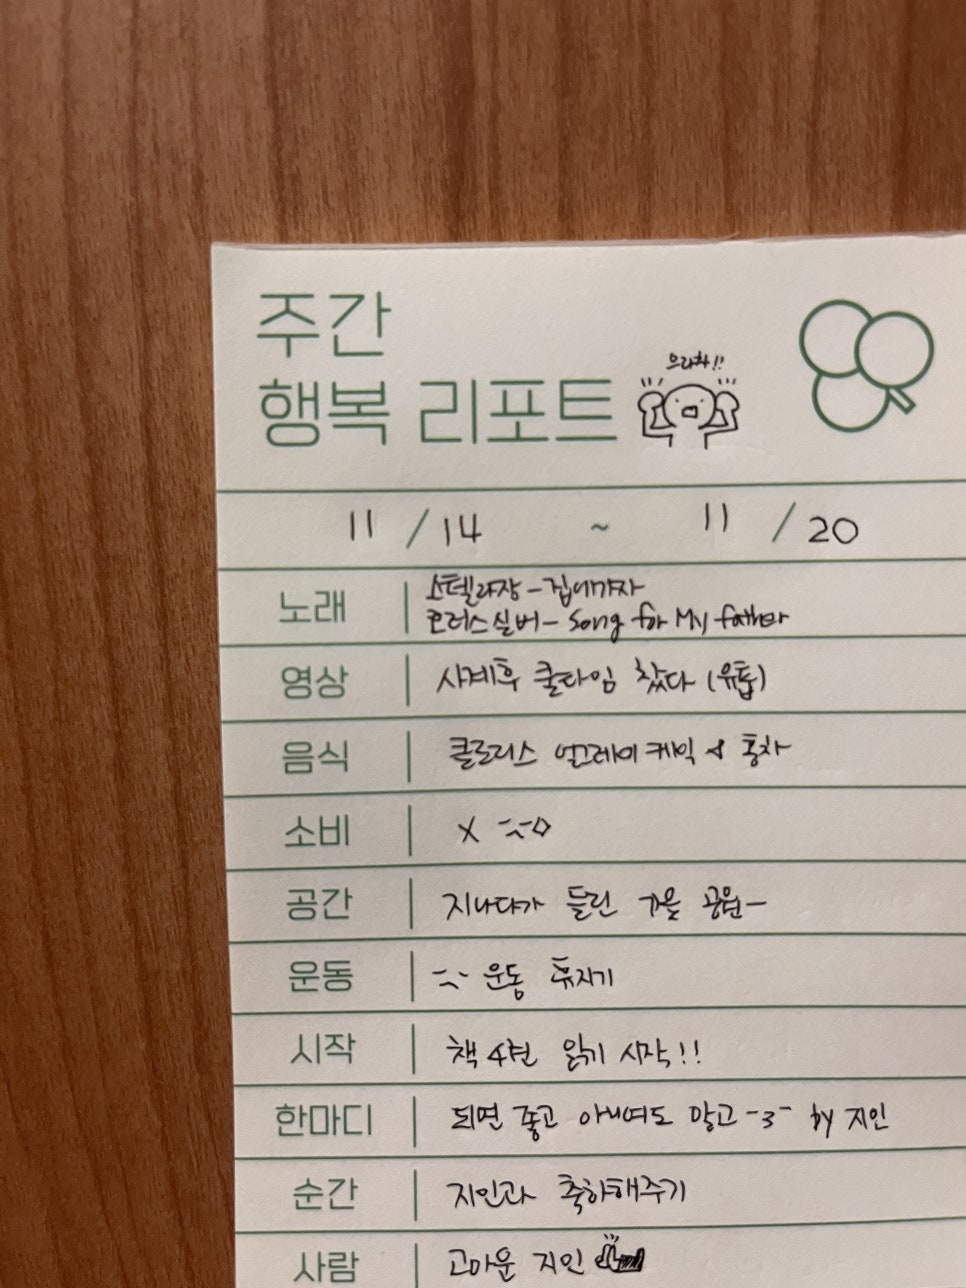 주간
행복 리포트
으라차!!
11 / 14 ~ 11 / 20
노래 스텔라장 - 집에가자
호러스실버 - Song for My father
영상 사계후 쿨타임 찼다 (유튭)
음식 클로리스 얼그레이 케익 & 홍차
소비 X
공간 지나다가 들린 가을 공원ㅡ
운동 운동 휴지기
시작 책 4권 읽기 시작!!
한마디 되면 좋고 아니여도 말고 -3- by 지인
순간 지인과 축하해주기
사람 고마운 지인